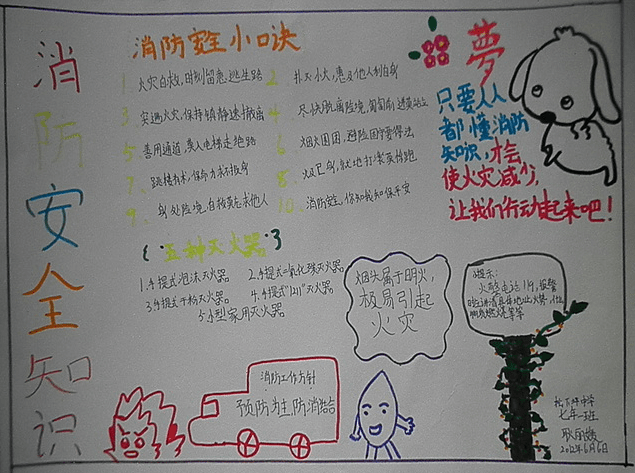 消防安全知识
消防安全小口诀
1. 火灾自救,时刻留意,逃生路
2. 扑灭小火,惠及他人利自身
3. 突遇火灾,保持镇静速撤离
4. 尽快脱离险境,
5. 善用通道,莫入电梯走绝路
6. 烟火围困,避险固守要得法
7. 跳楼有术,保命力求
8. 火已及身,就地打滚莫惊跑
9. 身处险境,自救莫忘救他人
10. 消防安全,你知我知保平安
五种灭火器
1.手提式泡沫灭火器
2.手提式二氧化碳灭火器
3.手提式干粉灭火器。
4.手提式"1211"灭火器
5.小型家用灭火器
梦
只要人人
都懂消防
知识,才会
使火灾减少,
让我们行动起来吧!
烟头属于明火,
极易引起
火灾
提示:
火警电话119,报警
消防工作方针
预防为主防消结合
七年一班
2012年6月6日